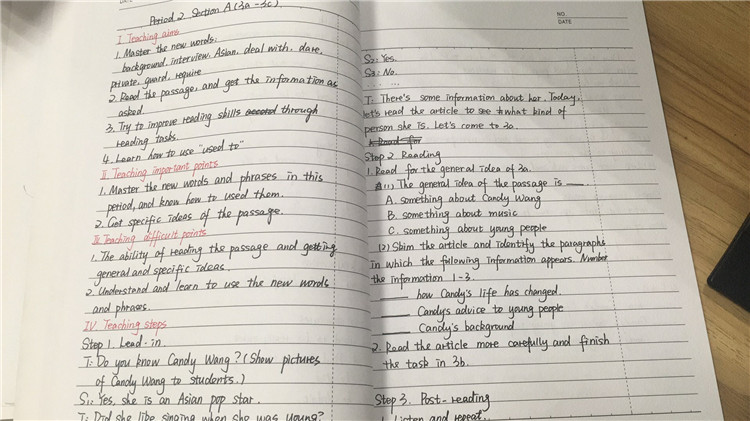 DATE
Period 2 Section A (3a-3c)
I Teaching aims
1. Master the new words:
background, interview, Asian, deal with, dare,
private, guard, require
2. Read the passage, and get the information as
asked.
3. Try to improve reading skills through
reading tasks.
4. Learn how to use "used to"
II Teaching important points
1. Master the new words and phrases in this
period, and know how to used them.
2. Get specific ideas of the passage.
III Teaching difficult points
1. The ability of reading the passage and getting
general and specific ideas.
2. Understand and learn to use the new words
and phrases.
IV Teaching steps
Step 1. Lead-in
T: Do you know Candy Wang? (Show pictures
of Candy Wang to students.)
S1: Yes, she is an Asian pop star.
T: Did she like singing when she was young?
NO.
DATE
S2: Yes.
S3: No.
......
T: There's some information about her. Today,
let's read the article to see what kind of
person she is. Let's come to 3a.
Step 2 Reading
1. Read for the general idea of 3a.
(1) The general idea of the passage is ____.
A. something about Candy Wang
B. something about music
C. something about young people
(2) Skim the article and identify the paragraphs
in which the following information appears. Number
the information 1-3.
____ how Candy's life has changed.
____ Candy's advice to young people
____ Candy's background
2. Read the article more carefully and finish
the task in 3b.
Step 3. Post-reading
1. Listen and repeat.